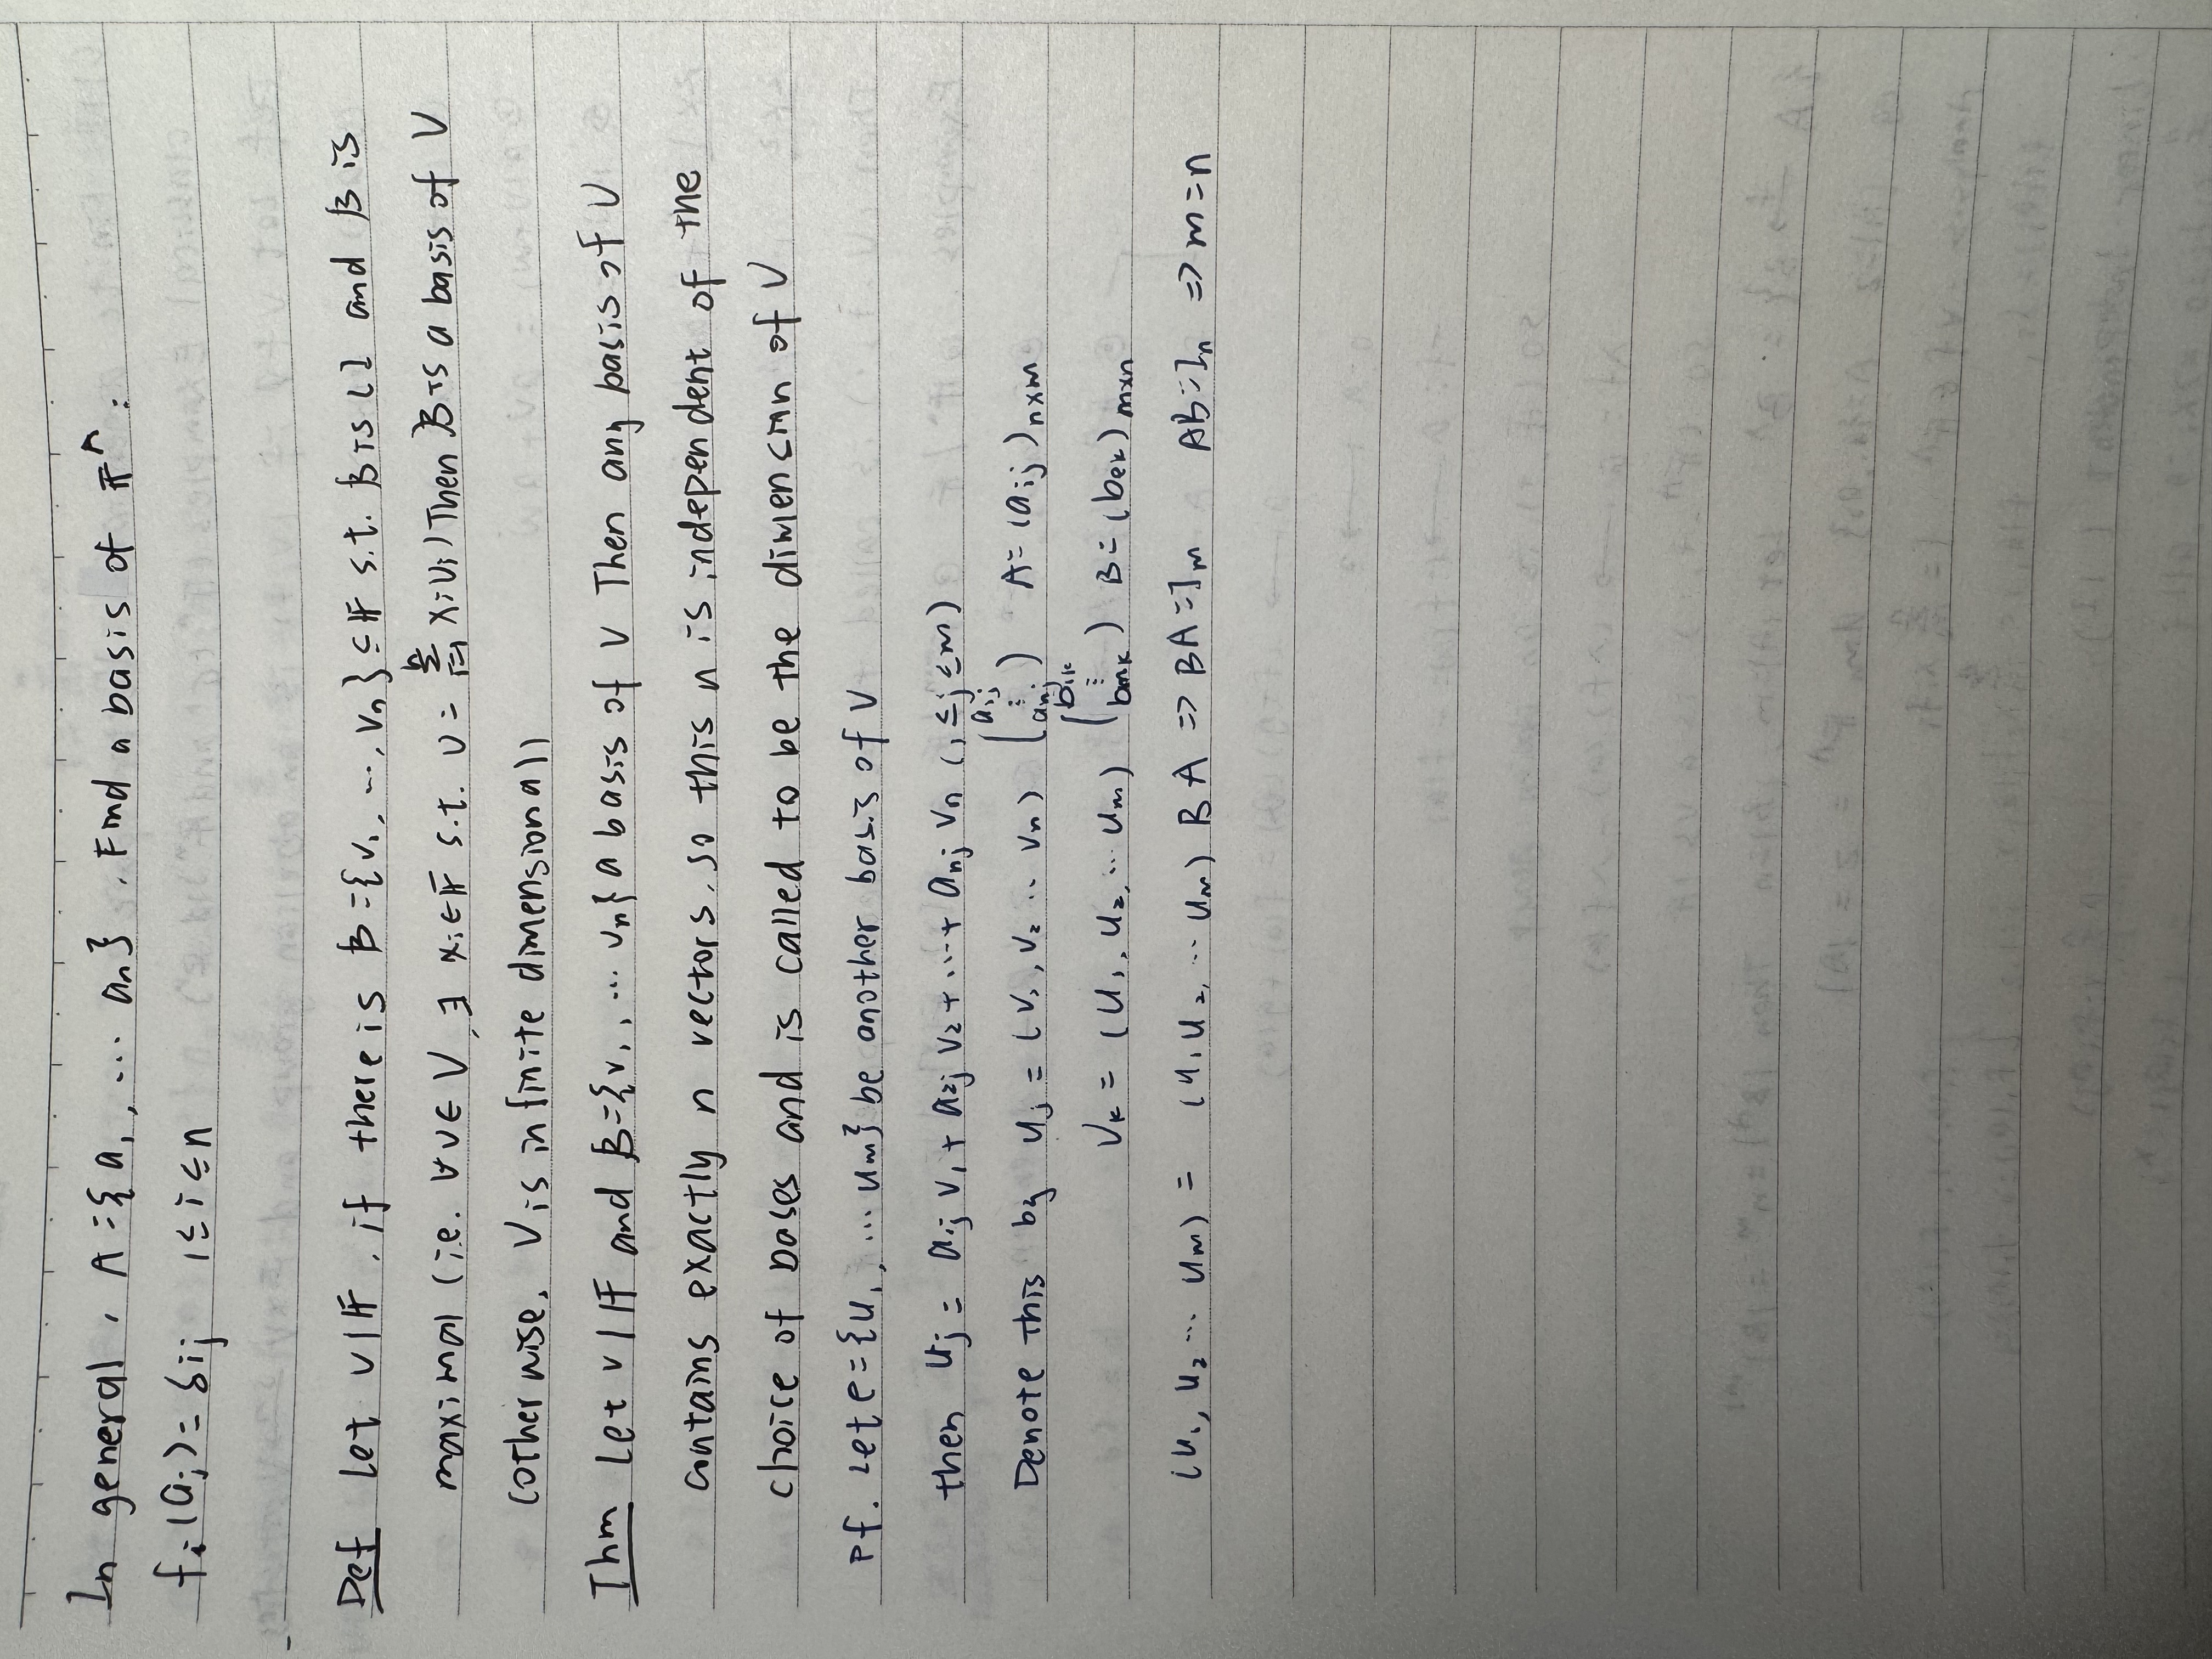 In general, A={a1, ... an}. Find a basis of 𝔽^A:
fi(aj)=δij 1≤i≤n
Def Let V|𝔽, if there is B={v1, ..., vn}⊆𝔽 s.t. B is LI and B is
maximal (i.e. ∀v∈V, ∃ xi∈𝔽 s.t. v=∑_{i=1}^{n} xivi) Then B is a basis of V
(otherwise, V is infinite dimensional)
Thm Let V|𝔽 and B={v1, ... vn} a basis of V Then any basis of V
contains exactly n vectors, so this n is independent of the
choice of bases and is called to be the dimension of V
Pf. Let e={u1, ... um} be another basis of V
then uj = a1j v1 + a2j v2 + ... + anj vn (1≤j≤m)
Denote this by uj = (v1, v2 ... vn) (a1j ⋮ anj) A=(aij)n×m
Vk = (u1, u2, ... um) (b1k ⋮ bmk) B=(bek)m×n
(u1, u2 ... um) = (u1 u2, ... um) B A => BA=Im AB=In => m=n